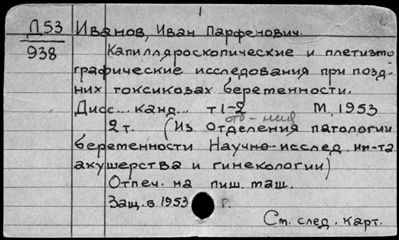 Д.53
938
Иванов, Иван Парфенович.
Капилляроскопические и плетизмо
графические исследования при позд-
них токсикозах беременности.
Дисс... канд... т 1-2 М, 1953
2 т. (Из отделения патологии
беременности Научно-исслед. ин-та
акушерства и гинекологии)
Отпеч. на пиш. маш.
Защ. в 1953 г.
См. след. карт.